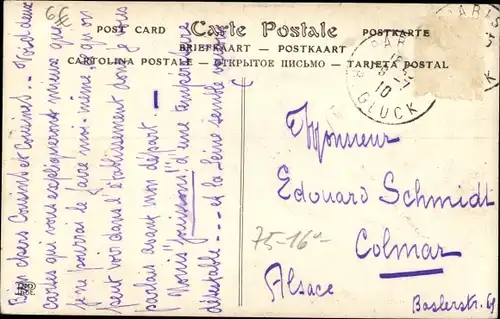 6€
POST CARD
Carte Postale
POSTKARTE
BRIEFKAART — POSTKAART
CARTOLINA POSTALE — ОТКРЫТОЕ ПИСЬМО — TARJETA POSTAL
PARIS
10
GLUCK
Bien chers Cousin et Cousines.. Voici deux
cartes qui vous expliqueront mieux que
je ne pourrai le faire moi-même, ce qu'on
peut voir dans l'établissement dont je vous
parlais avant mon départ. —
Nous "jouissons" d'une température
détestable — — et la Seine semble
Monsieur
Edouard Schmidt
75-16e
Colmar
Alsace
Baslerstr.